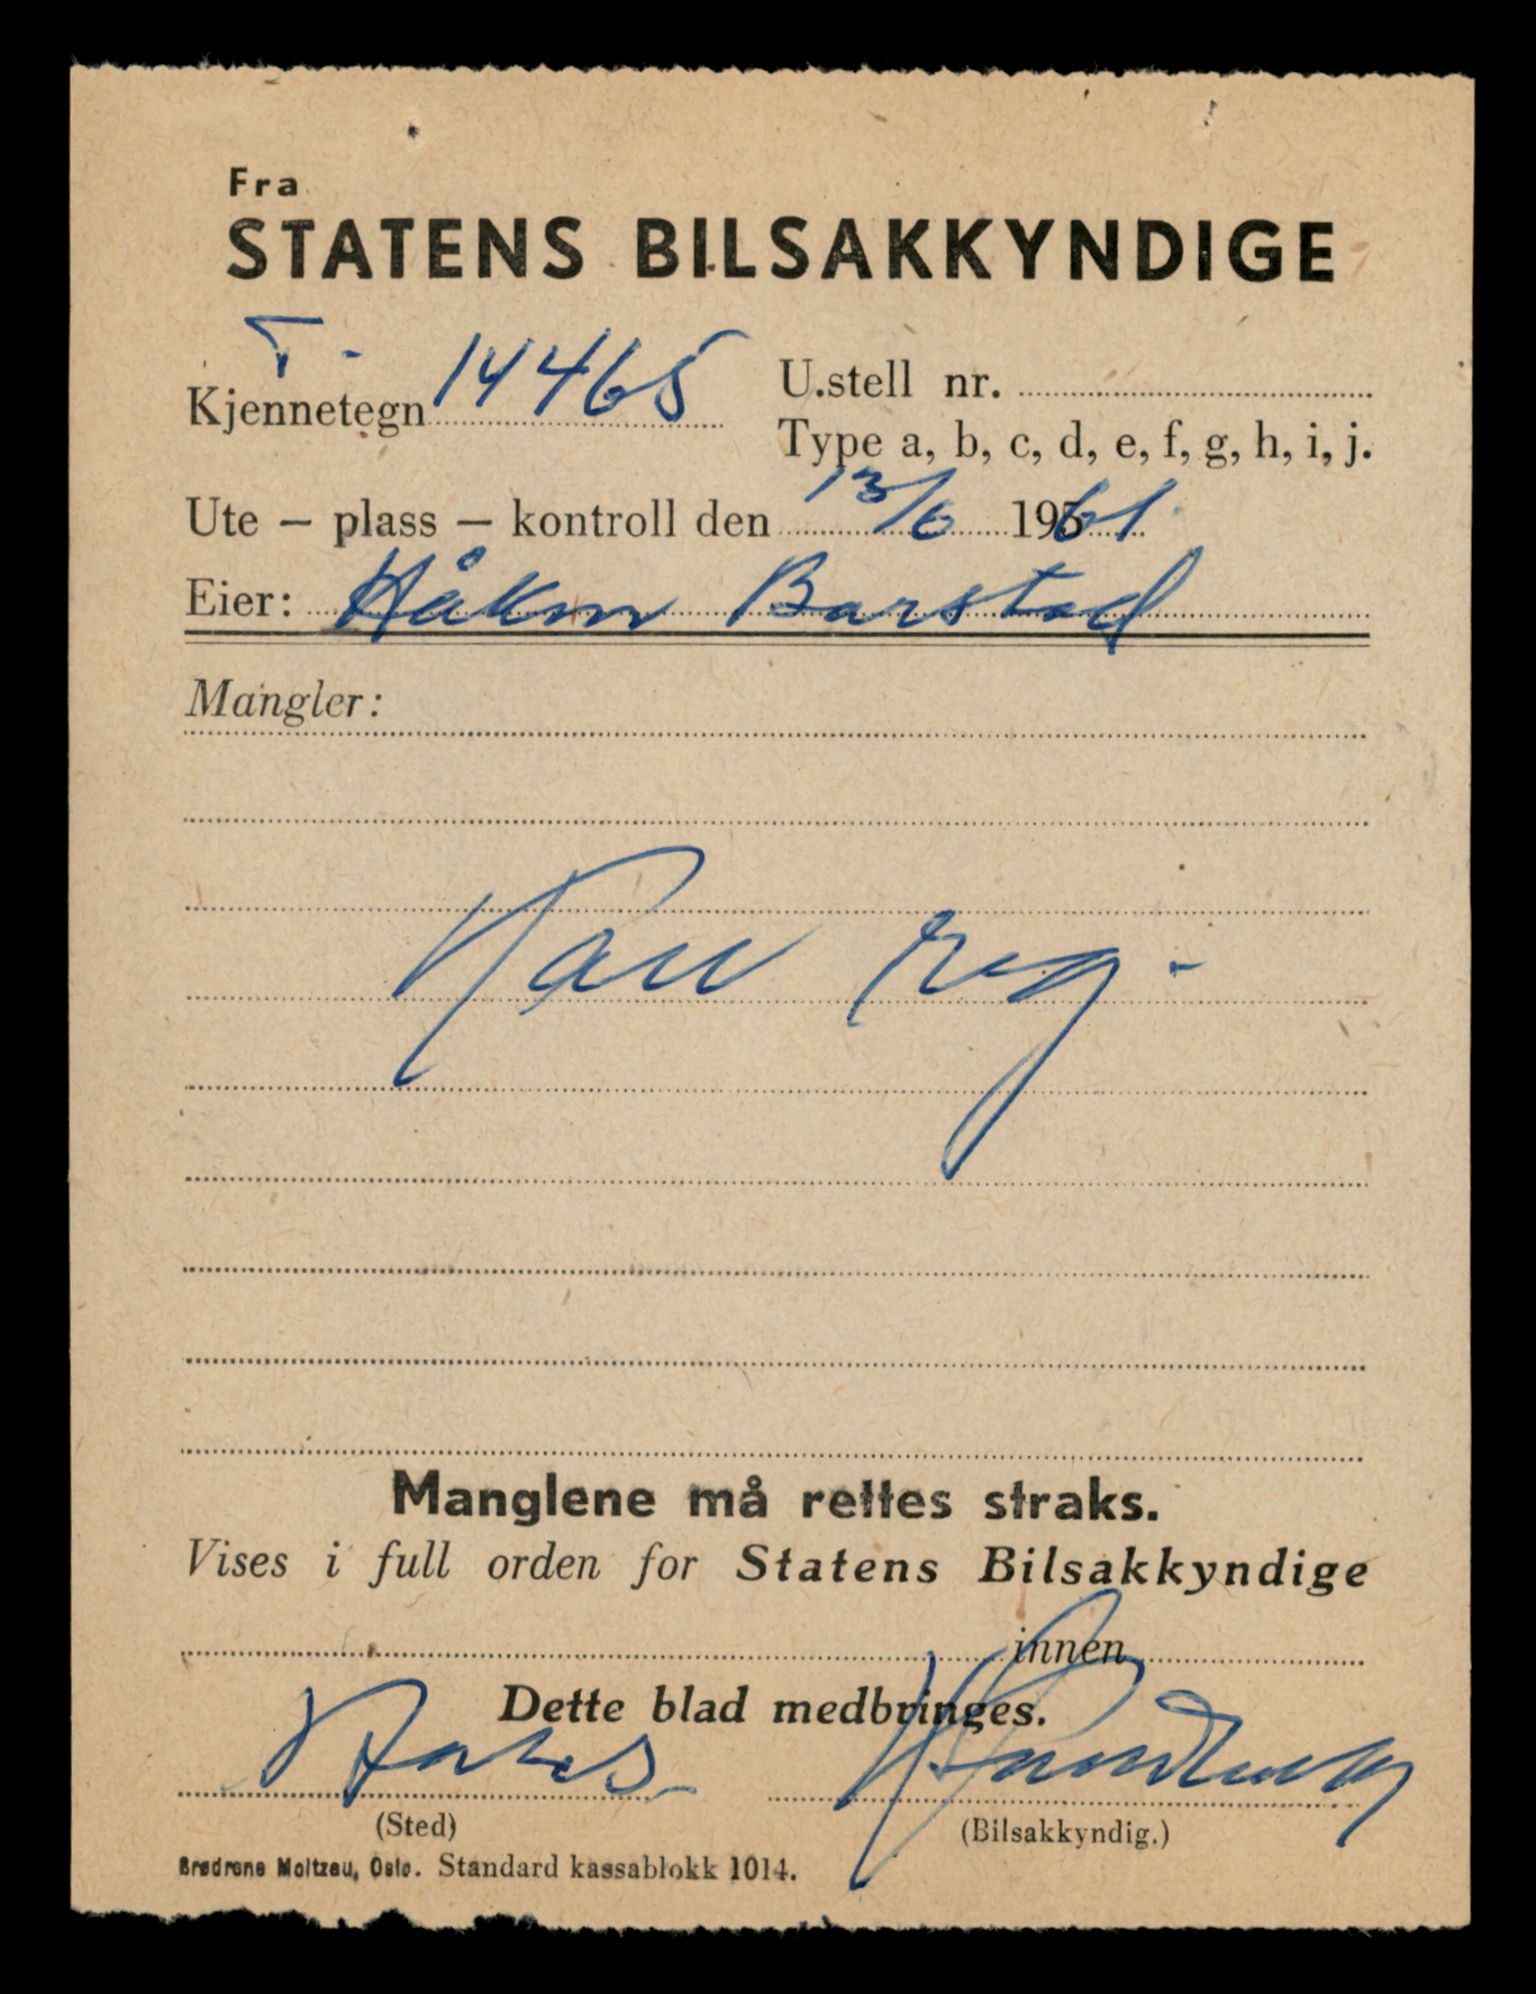 Fra
STATENS BILSAKKYNDIGE
T-
Kjennetegn 14465
U.stell nr.
Type a, b, c, d, e, f, g, h, i, j.
Ute – plass – kontroll den 13/6 1961.
Eier: Håkon Barstad
Mangler:
Kan reg.
Manglene må rettes straks.
Vises i full orden for Statens Bilsakkyndige
innen
Dette blad medbringes.
(Sted)
(Bilsakkyndig.)
Brødrene Moltzau, Oslo. Standard kassablokk 1014.